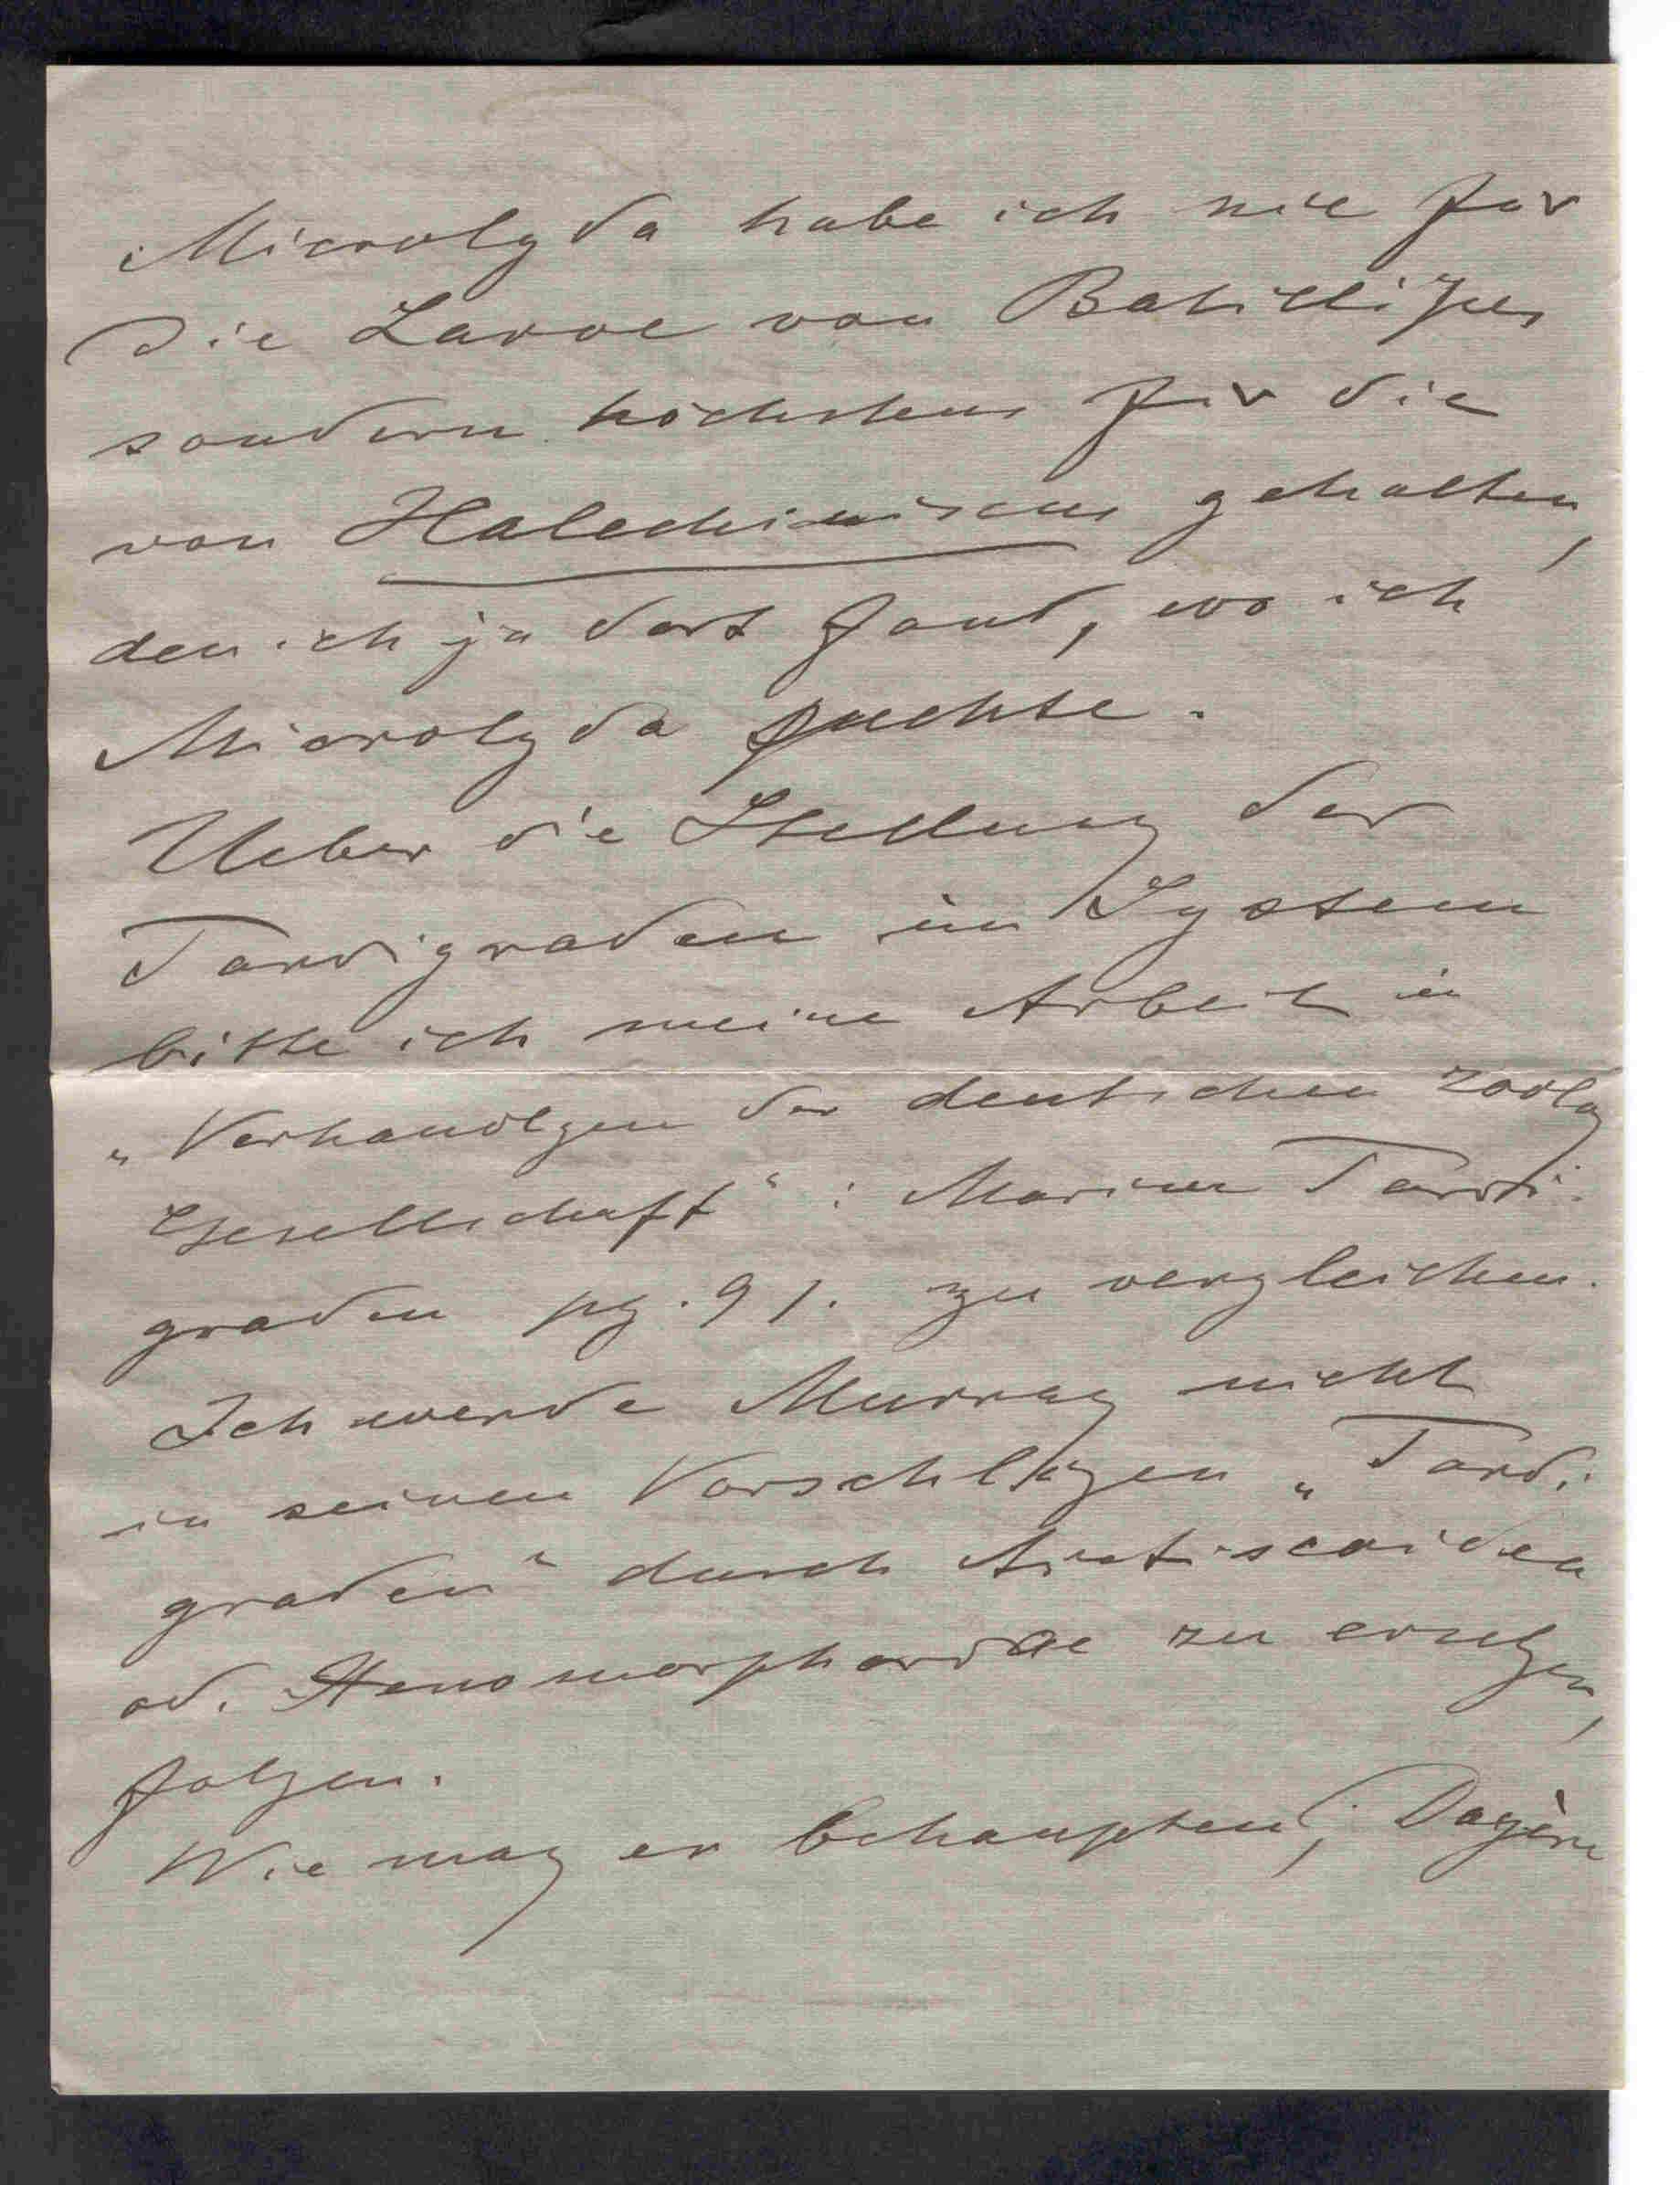 Microlyda habe ich nie für
die Larve von Batillipes
sondern höchstens für die
von Halechiniscus gehalten,
den ich ja dort fand, wo ich
Microlyda suchte.
Ueber die Stellung der
Tardigraden im System
bitte ich meine Arbeit in
„Verhandlgen der deutschen zoolog
Gesellschaft“: Marine Tardi-
graden pg. 91. zu vergleichen.
Ich werde Murray nicht
in seinen Vorschlägen „Tardi
graden“ durch Arctiscoidea
od. Xenomorphidae zu ersetzen,
folgen.
Wie mag er behaupten, Doyère